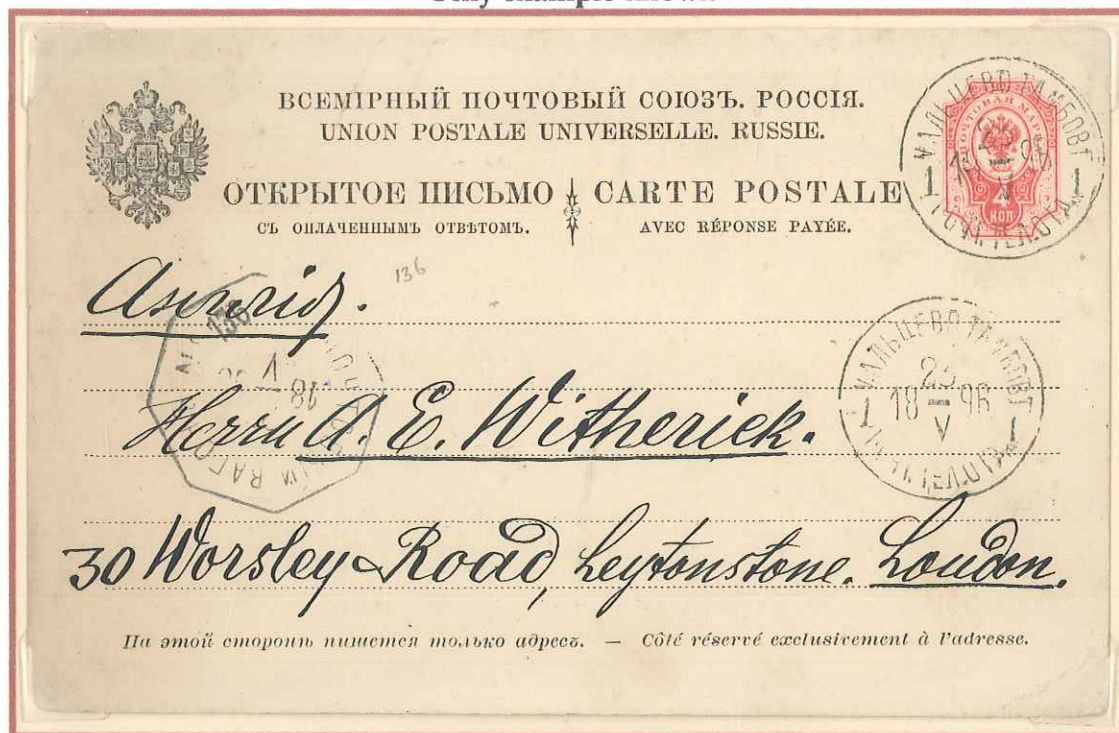 ВСЕМІРНЫЙ ПОЧТОВЫЙ СОЮЗЪ. РОССІЯ.
UNION POSTALE UNIVERSELLE. RUSSIE.
ОТКРЫТОЕ ПИСЬМО CARTE POSTALE
СЪ ОПЛАЧЕННЫМЪ ОТВѢТОМЪ. AVEC RÉPONSE PAYÉE.
ПОЧТОВАЯ МАРКА
4
КОП
ТАМБОВ
136
136
18 V
Herrn A. E. Witherick.
ТАМБОВ
23
18 96
V
1 1
30 Worsley Road, Leytonstone. London.
На этой сторонѣ пишется только адресъ. — Côté réservé exclusivement à l'adresse.